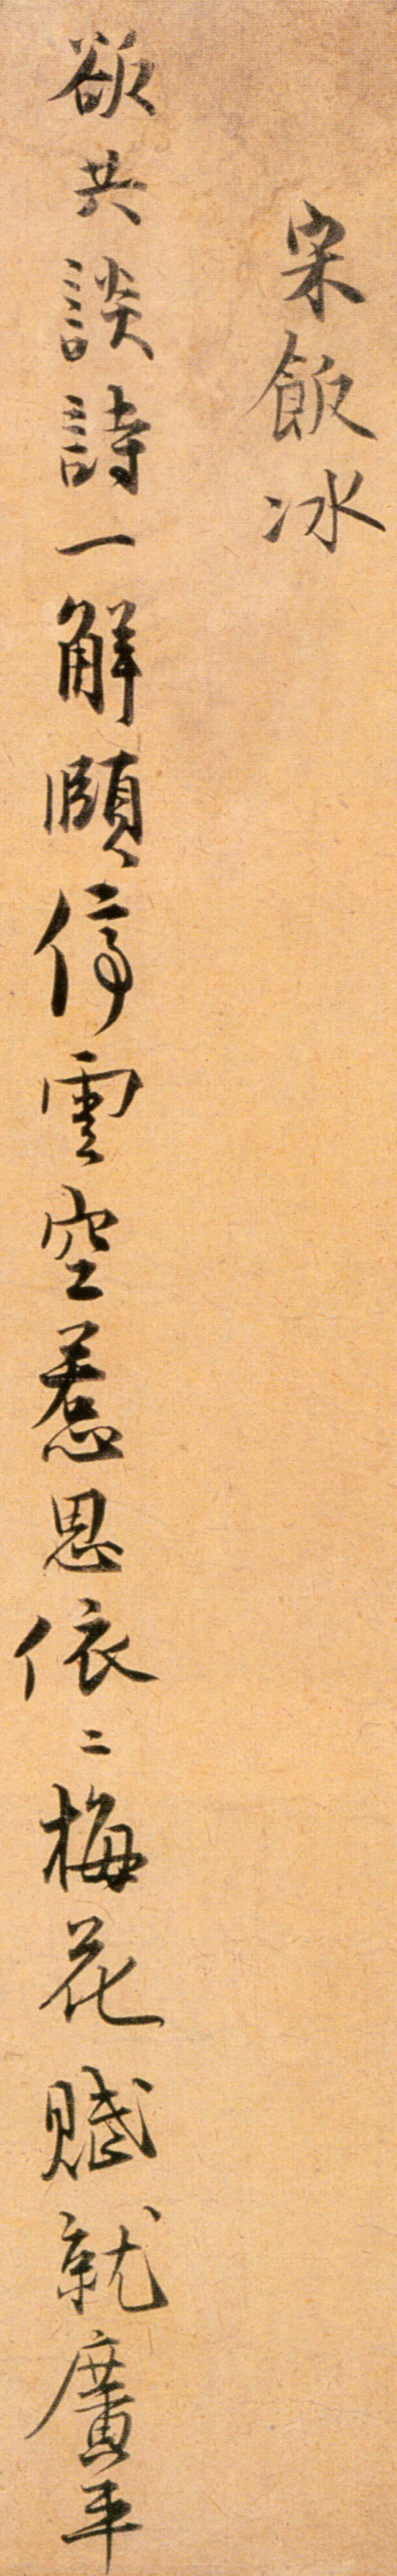 宋飯冰
欲共談詩一解頤停雲空惹思依〻梅花賦就廣平